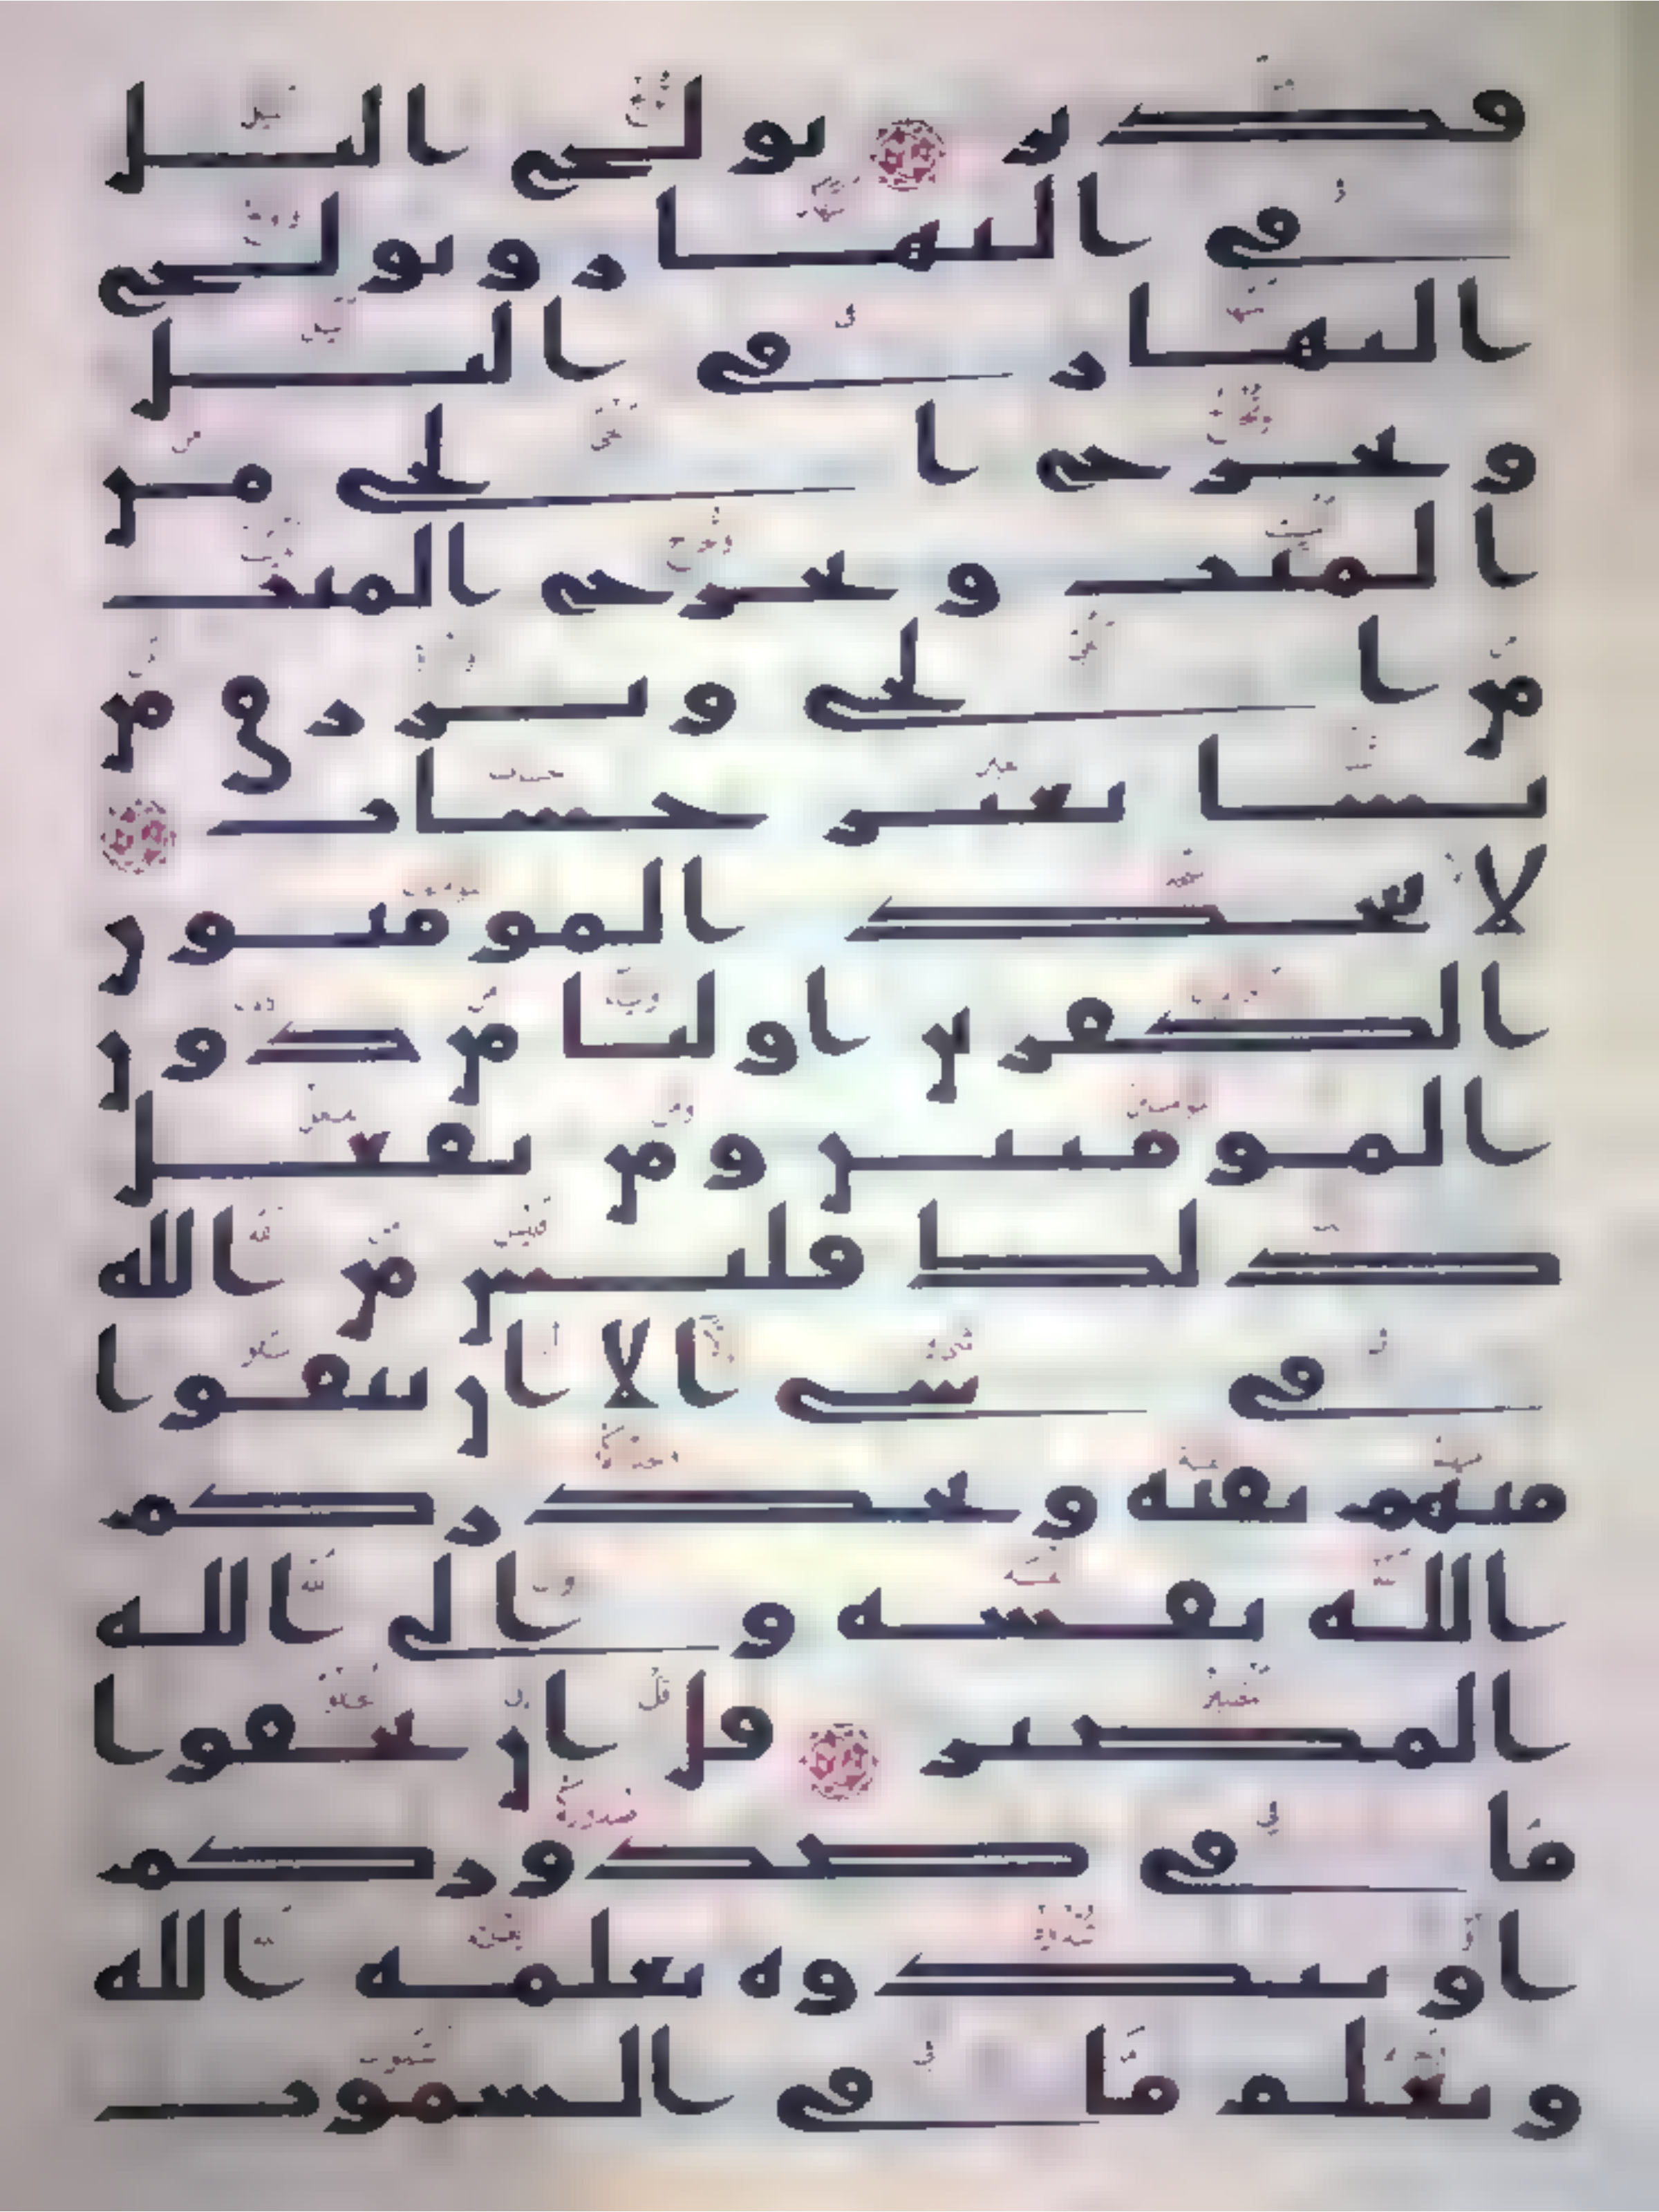 قدير تولج اليل
في النهار وتولج
النهار في اليل
وتخرج الحي من
الميت وتخرج الميت
من الحي وترزق من
تشا بغير حساب
لا يتخذ المومنون
الكفرين اوليا من دون
المومنين ومن يفعل
ذلك فليس من الله
في شي الا ان تتقوا
منهم تقىة ويحذركم
الله نفسه والى الله
المصير قل ان تخفوا
ما في صدوركم
او تبدوه يعلمه الله
ويعلم ما في السموت